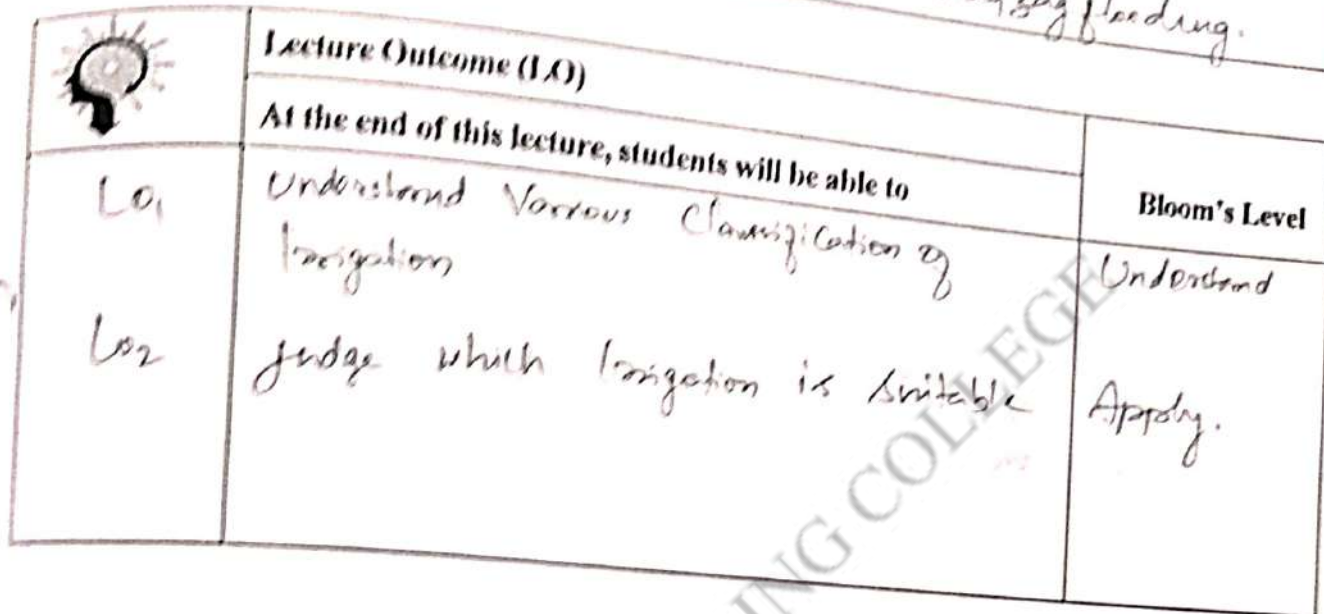 flooding.
Lecture Outcome (LO)
At the end of this lecture, students will be able to
Bloom's Level
LO1 Understand Various Classification of
Irrigation
Understand
LO2 judge which Irrigation is suitable
Apply.
ING COLLEGE